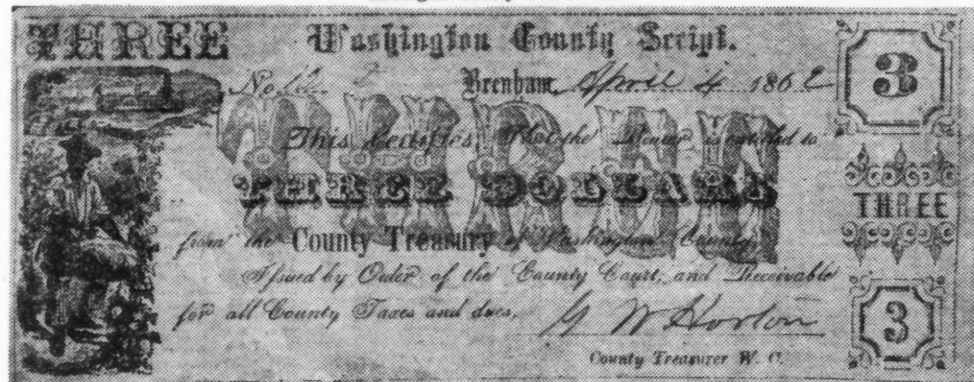 THREE Washington County Script. 3
No 2 Brenham, April 4 1862
This certifies that the Bearer is entitled to
THREE
THREE DOLLARS
THREE
from the County Treasury of Washington County
Issued by Order of the County Court, and Receivable
for all County Taxes and dues, G W Horton 3
County Treasurer W. C.